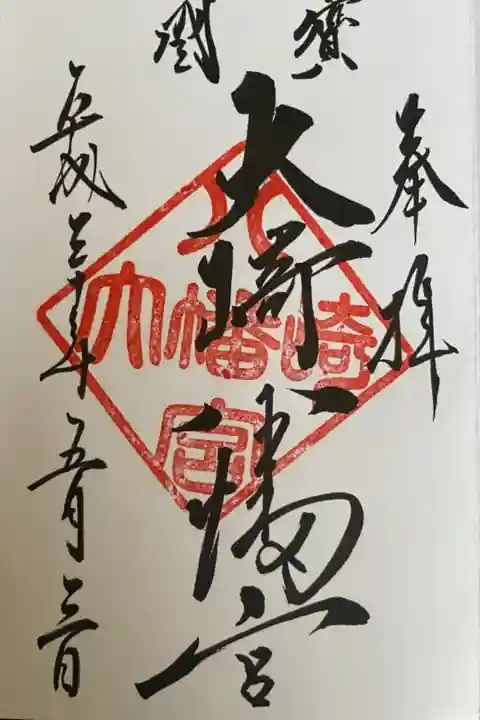 奉拝
大崎八幡宮
平成三十年五月三日
大崎八幡宮